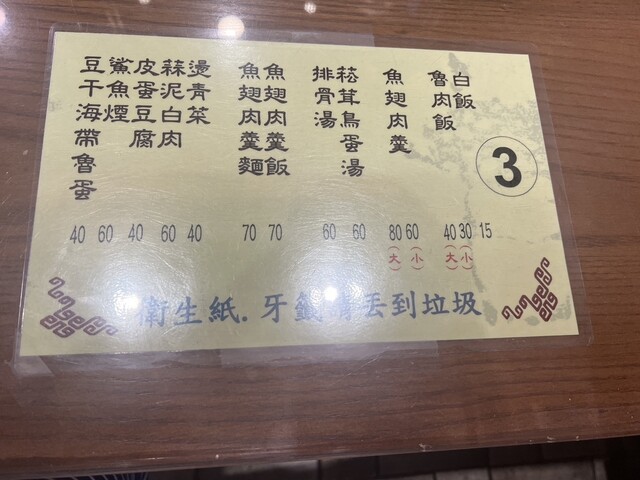 白飯
魯肉飯
魚翅肉羹
菘茸鳥蛋湯
排骨湯
魚翅肉羹飯
魚翅肉羹麵
燙青菜
蒜泥白肉
皮蛋豆腐
鯊魚煙
豆干海帶魯蛋
3
40 60 40 60 40 70 70 60 60 80 60 40 30 15
(大) (小) (大) (小)
衛生紙.牙籤請丟到垃圾